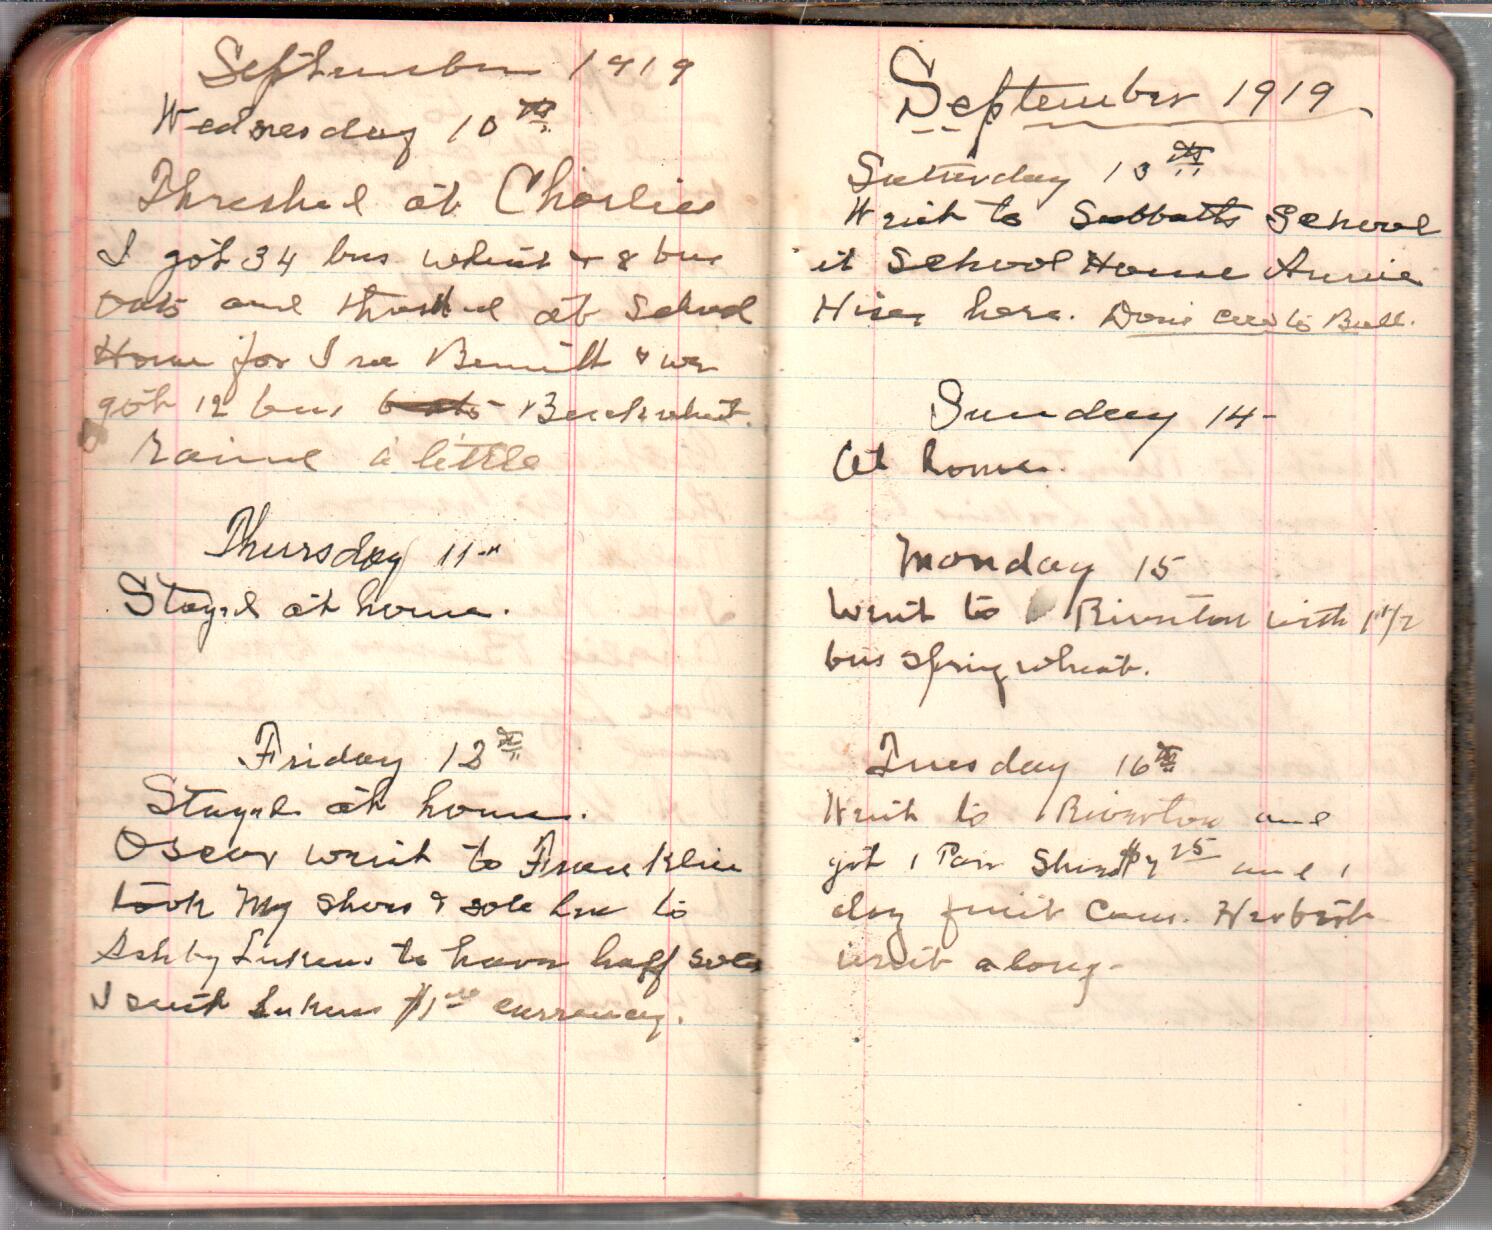 September 1919
Wednesday 10th
Threshed at Charlies
I got 34 bus wheat & 8 bus
oats and thrashed at School
House for Ira Bennett & we
got 12 bus Buckwheat.
rained a little
Thursday 11th
Stayed at home.
Friday 12th
Stayed at home.
Oscar went to Franklin
took my shoes & sole her to
Ashby Lukens to have half soled
I sent Lukens $1.00 currency.
September 1919
Saturday 13th
Went to Sabbath School
at School House Annie
Hiser here. Dons cow to Bull.
Sunday 14-
At home.
Monday 15
Went to Riverton with 1 1/2
bus spring wheat.
Tuesday 16th
Went to Riverton and
got 1 Pair Shoes $7 25 and 1
doz fruit Cans. Herbert
went along-